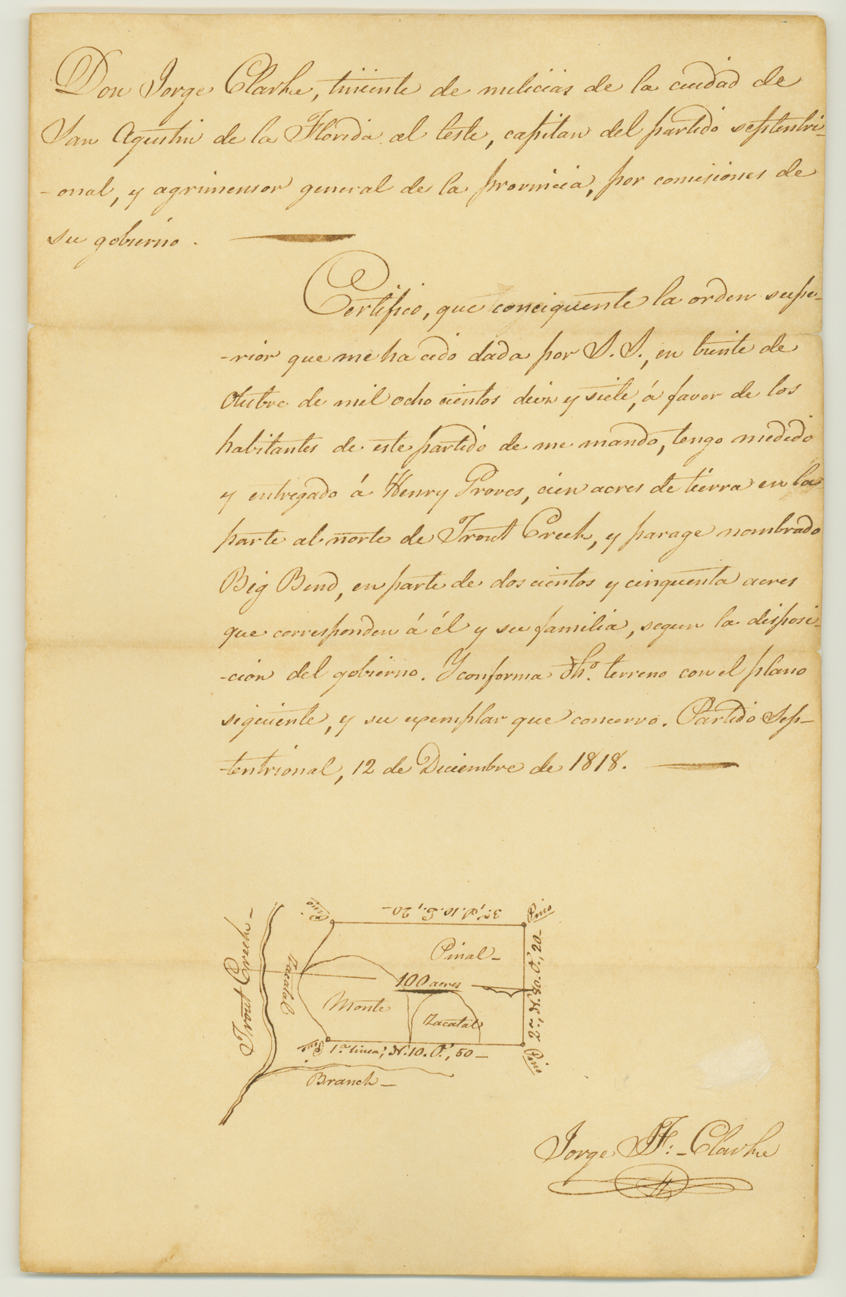 Don Jorge Clarke, tiniente de milicias de la ciudad de
San Agustin de la Florida al leste, capitan del partido septentri-
-onal, y agrimensor general de la provincia, por comisiones de
su gobierno.
Certifico, que conciquente la orden supe-
-rior que me ha cido dada por S. S., en treinte de
Otubre de mil ocho cientos diez y siete, á favor de los
habitantes de este partido de me mando, tengo medido
y entregado á Henry Groves, cien acres de tierra en la
parte al norte de Trout Creek, y parage nombrado
Big Bend, en parte de dos cientos y cinquenta acres
que corresponden á él y su familia, segun la disposi-
-ción del gobierno. Y conforma dho. terreno con el plano
siguiente, y su exemplar que concervo. Partido Sep-
-tentrional, 12 de Diciembre de 1818.
Pino
3ª, S. 10. E., 20-
Pino
Trout Creek-
Zacatal
Pinal-
100 acres
Monte
Zacatal
2ª, N. 80. O., 20-
Pino
1ª linea, N. 10. O., 50-
Pino
Branch-
Jorge J. F. Clarke